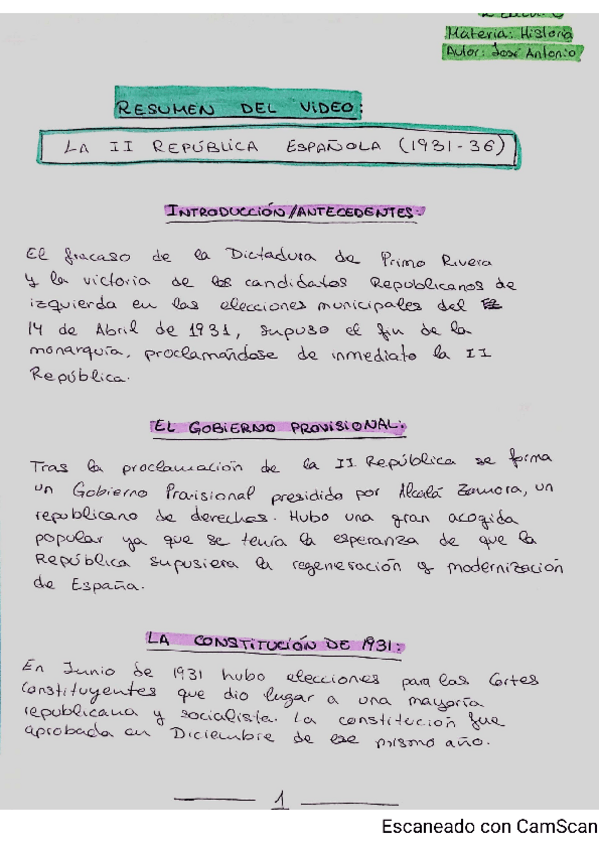 Materia: Historia
Autor: José Antonio
RESUMEN DEL VIDEO:
LA II REPÚBLICA ESPAÑOLA (1931-36)
INTRODUCCIÓN/ANTECEDENTES:
El fracaso de la Dictadura de Primo Rivera
y la victoria de los candidatos Republicanos de
izquierda en las elecciones municipales del
14 de Abril de 1931, supuso el fin de la
monarquía, proclamándose de inmediato la II
República.
EL GOBIERNO PROVISIONAL:
Tras la proclamación de la II República se forma
un Gobierno Provisional presidido por Alcalá Zamora, un
republicano de derechas. Hubo una gran acogida
popular ya que se tenía la esperanza de que la
República supusiera la regeneración y modernización
de España.
LA CONSTITUCIÓN DE 1931:
En Junio de 1931 hubo elecciones para las Cortes
Constituyentes que dio lugar a una mayoría
republicana y socialista. La constitución fue
aprobada en Diciembre de ese mismo año.
1
Escaneado con CamScan